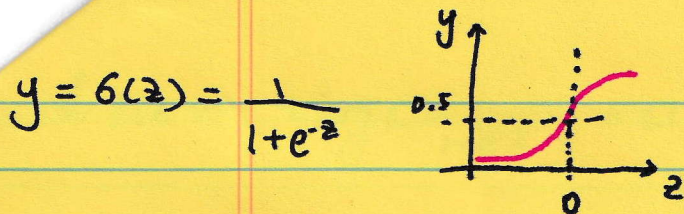 y = σ(z) = 1/(1+e^-z)
y
0.5
0
z